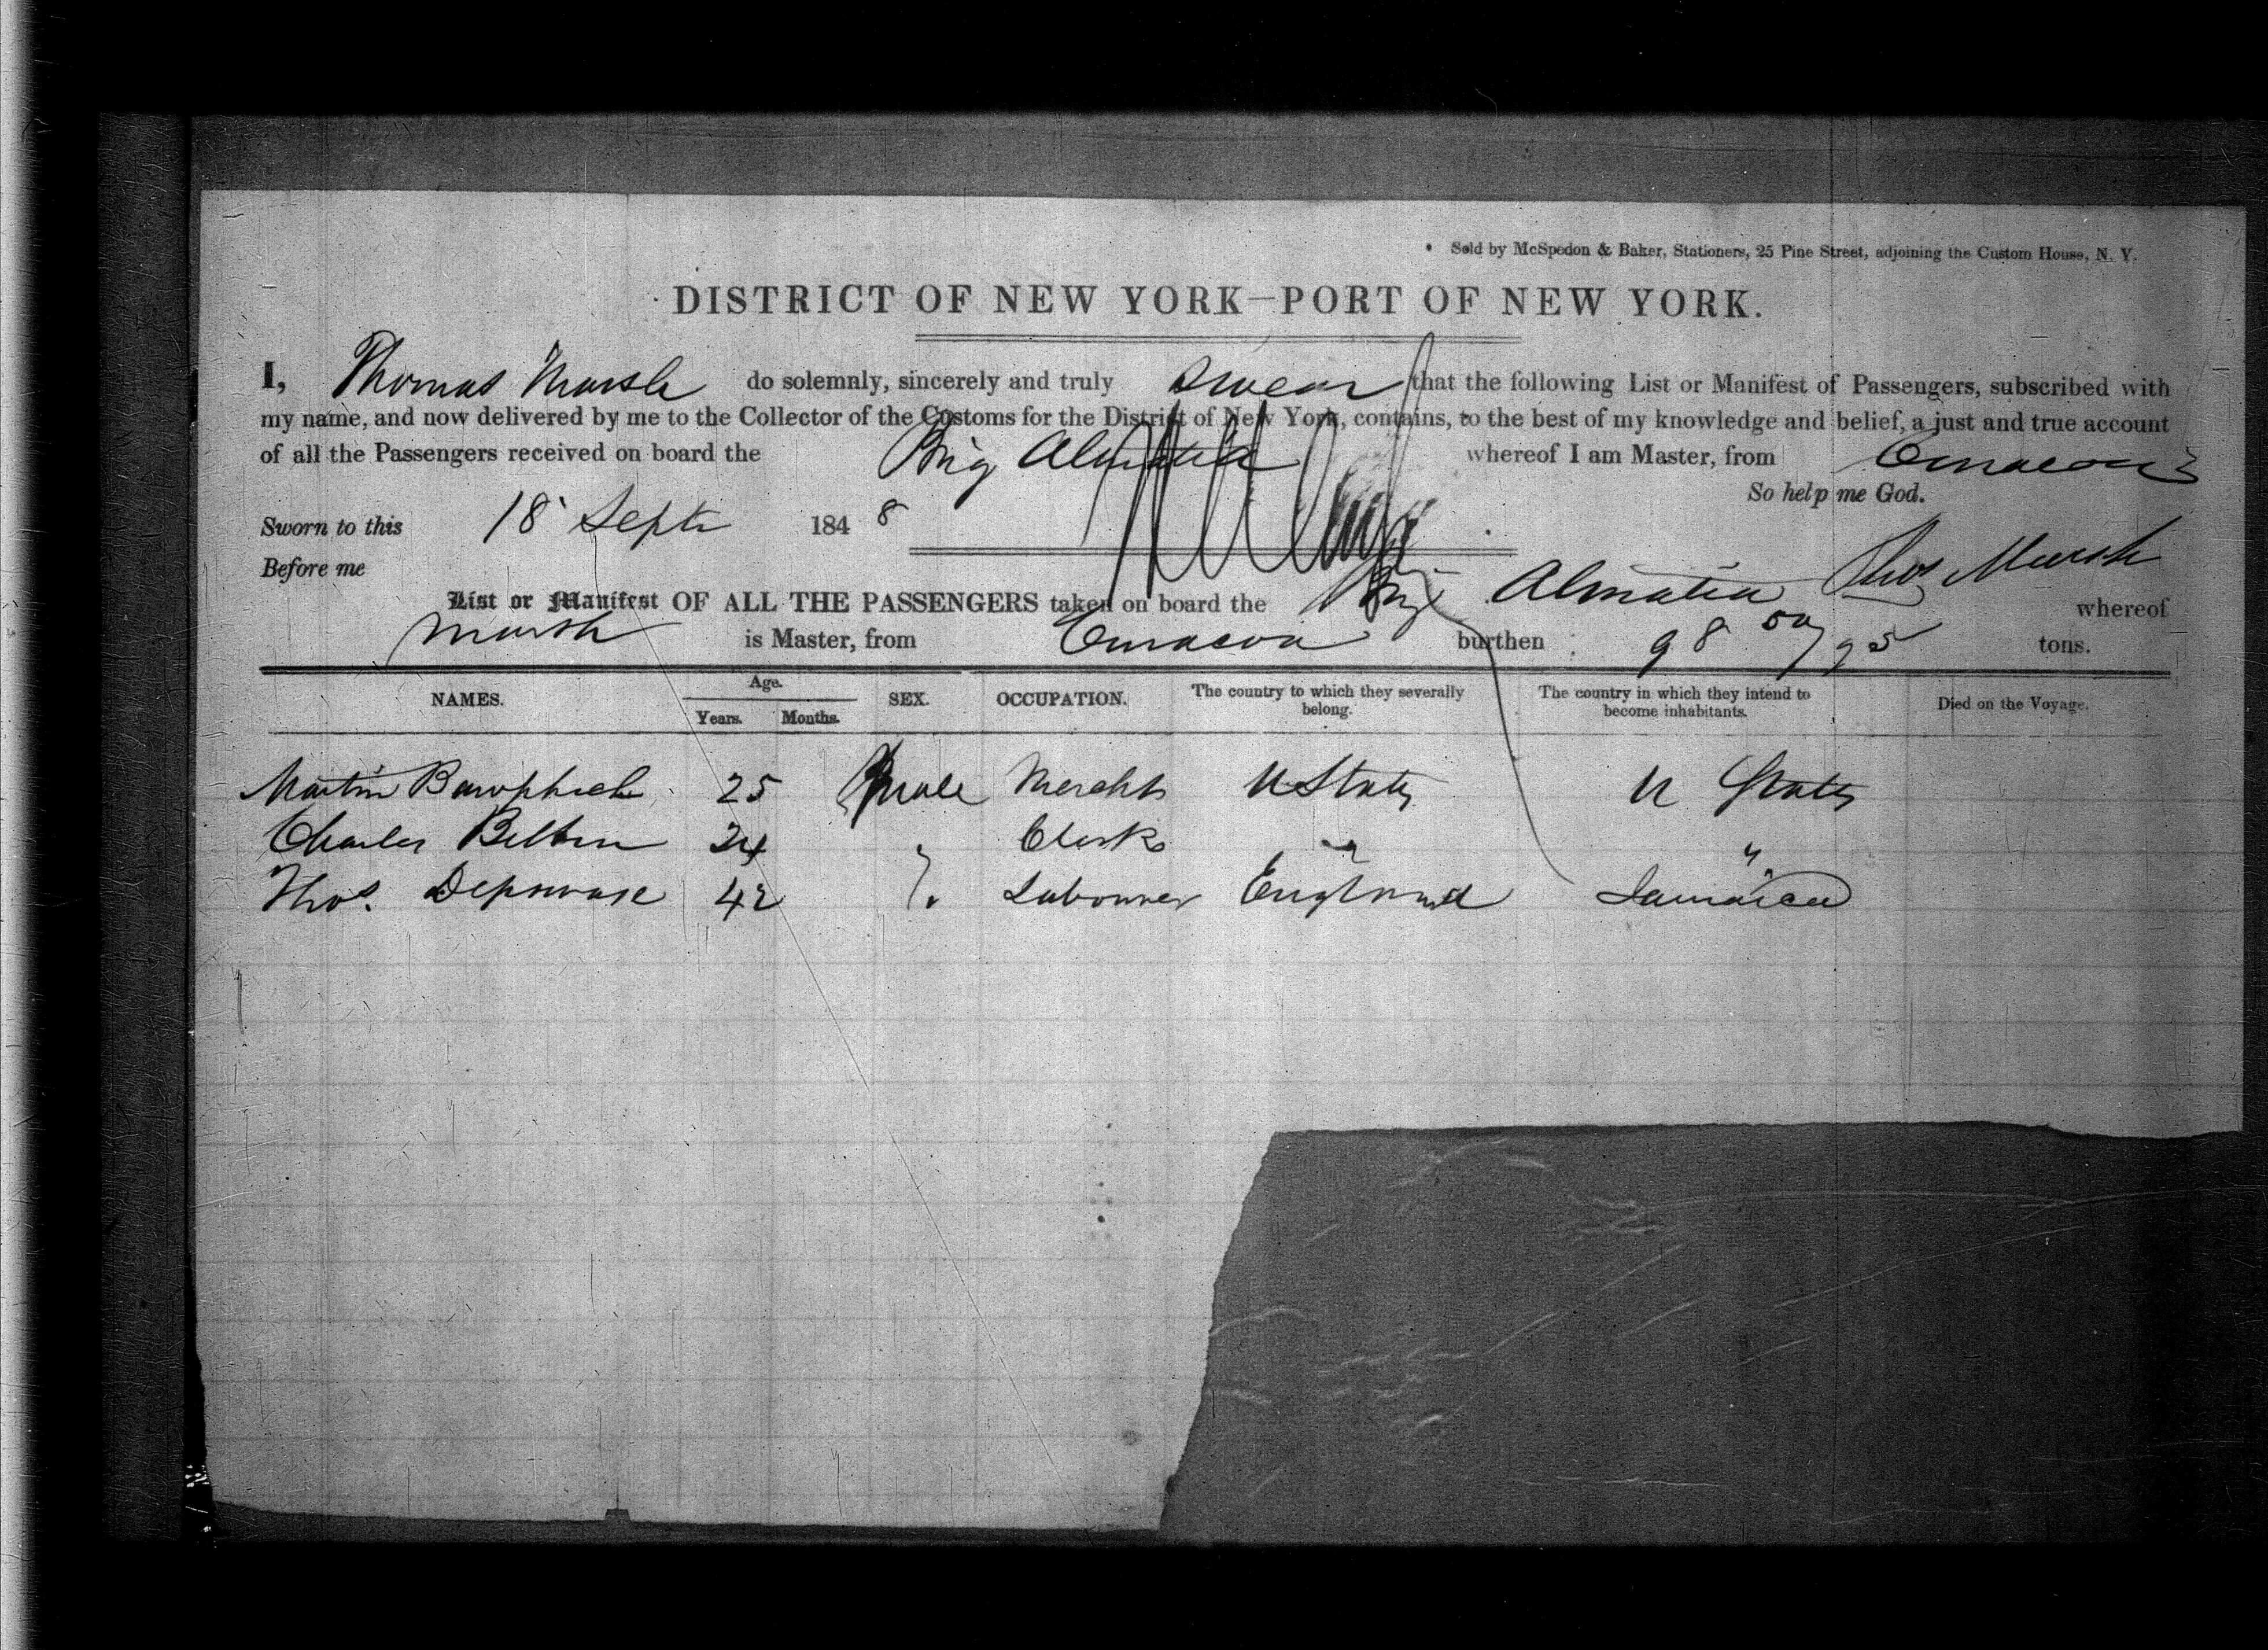 Sold by McSpedon & Baker, Stationers, 25 Pine Street, adjoining the Custom House, N. Y.
DISTRICT OF NEW YORK—PORT OF NEW YORK.
I, Thomas Marsh do solemnly, sincerely and truly swear that the following List or Manifest of Passengers, subscribed with
my name, and now delivered by me to the Collector of the Customs for the District of New York, contains, to the best of my knowledge and belief, a just and true account
of all the Passengers received on board the Brig Almatia whereof I am Master, from Curacoa
So help me God.
Sworn to this 18 Septr 1848
Before me Thos Marsh
List or Manifest OF ALL THE PASSENGERS taken on board the Brig Almatia whereof
Marsh is Master, from Curacoa burthen 98 50/95 tons.
NAMES. Age. Years. Months. SEX. OCCUPATION. The country to which they severally belong. The country in which they intend to become inhabitants. Died on the Voyage.
Martin 25 Male Mercht U States U States
Charles 24 Clerk " "
Thos. 42 Labourer England Jamaica